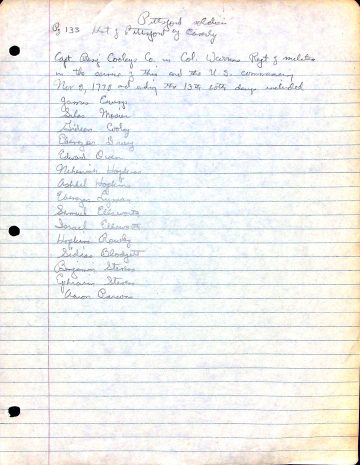 Pittsford soldiers
Pg 133 Hist of Pittsford by Caverly
Capt Benj Cooley's Co in Col. Warrens Regt of militia
in the service of this and the U.S. commencing
Nov 2, 1778 and ending the 13th both days included
James
Silas Mosier
Gideon Cooley
Ebenezer
Edward Owen
Nehemiah Hopkins
Ashbel Hopkins
Ebenezer Lyman
Samuel Ellsworth
Israel Ellsworth
Hopkins Rowley
Sideas Blodgett
Benjamin Stevens
Ephraim Stevens
Aaron Parsons